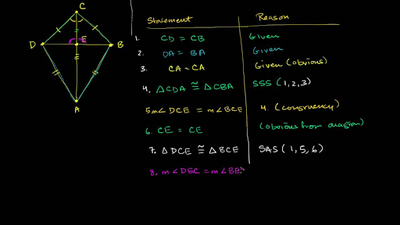 C
Statement
Reason
1. CD = CB
Given
D
E
B
2. DA = BA
Given
E
3. CA = CA
Given (obvious)
A
4. △CDA ≅ △CBA
SSS (1,2,3)
5. m∠DCE = m∠BCE
4. (congruency)
6. CE = CE
(obvious from diagram)
7. △DCE ≅ △BCE
SAS (1,5,6)
8. m∠DEC = m∠BE